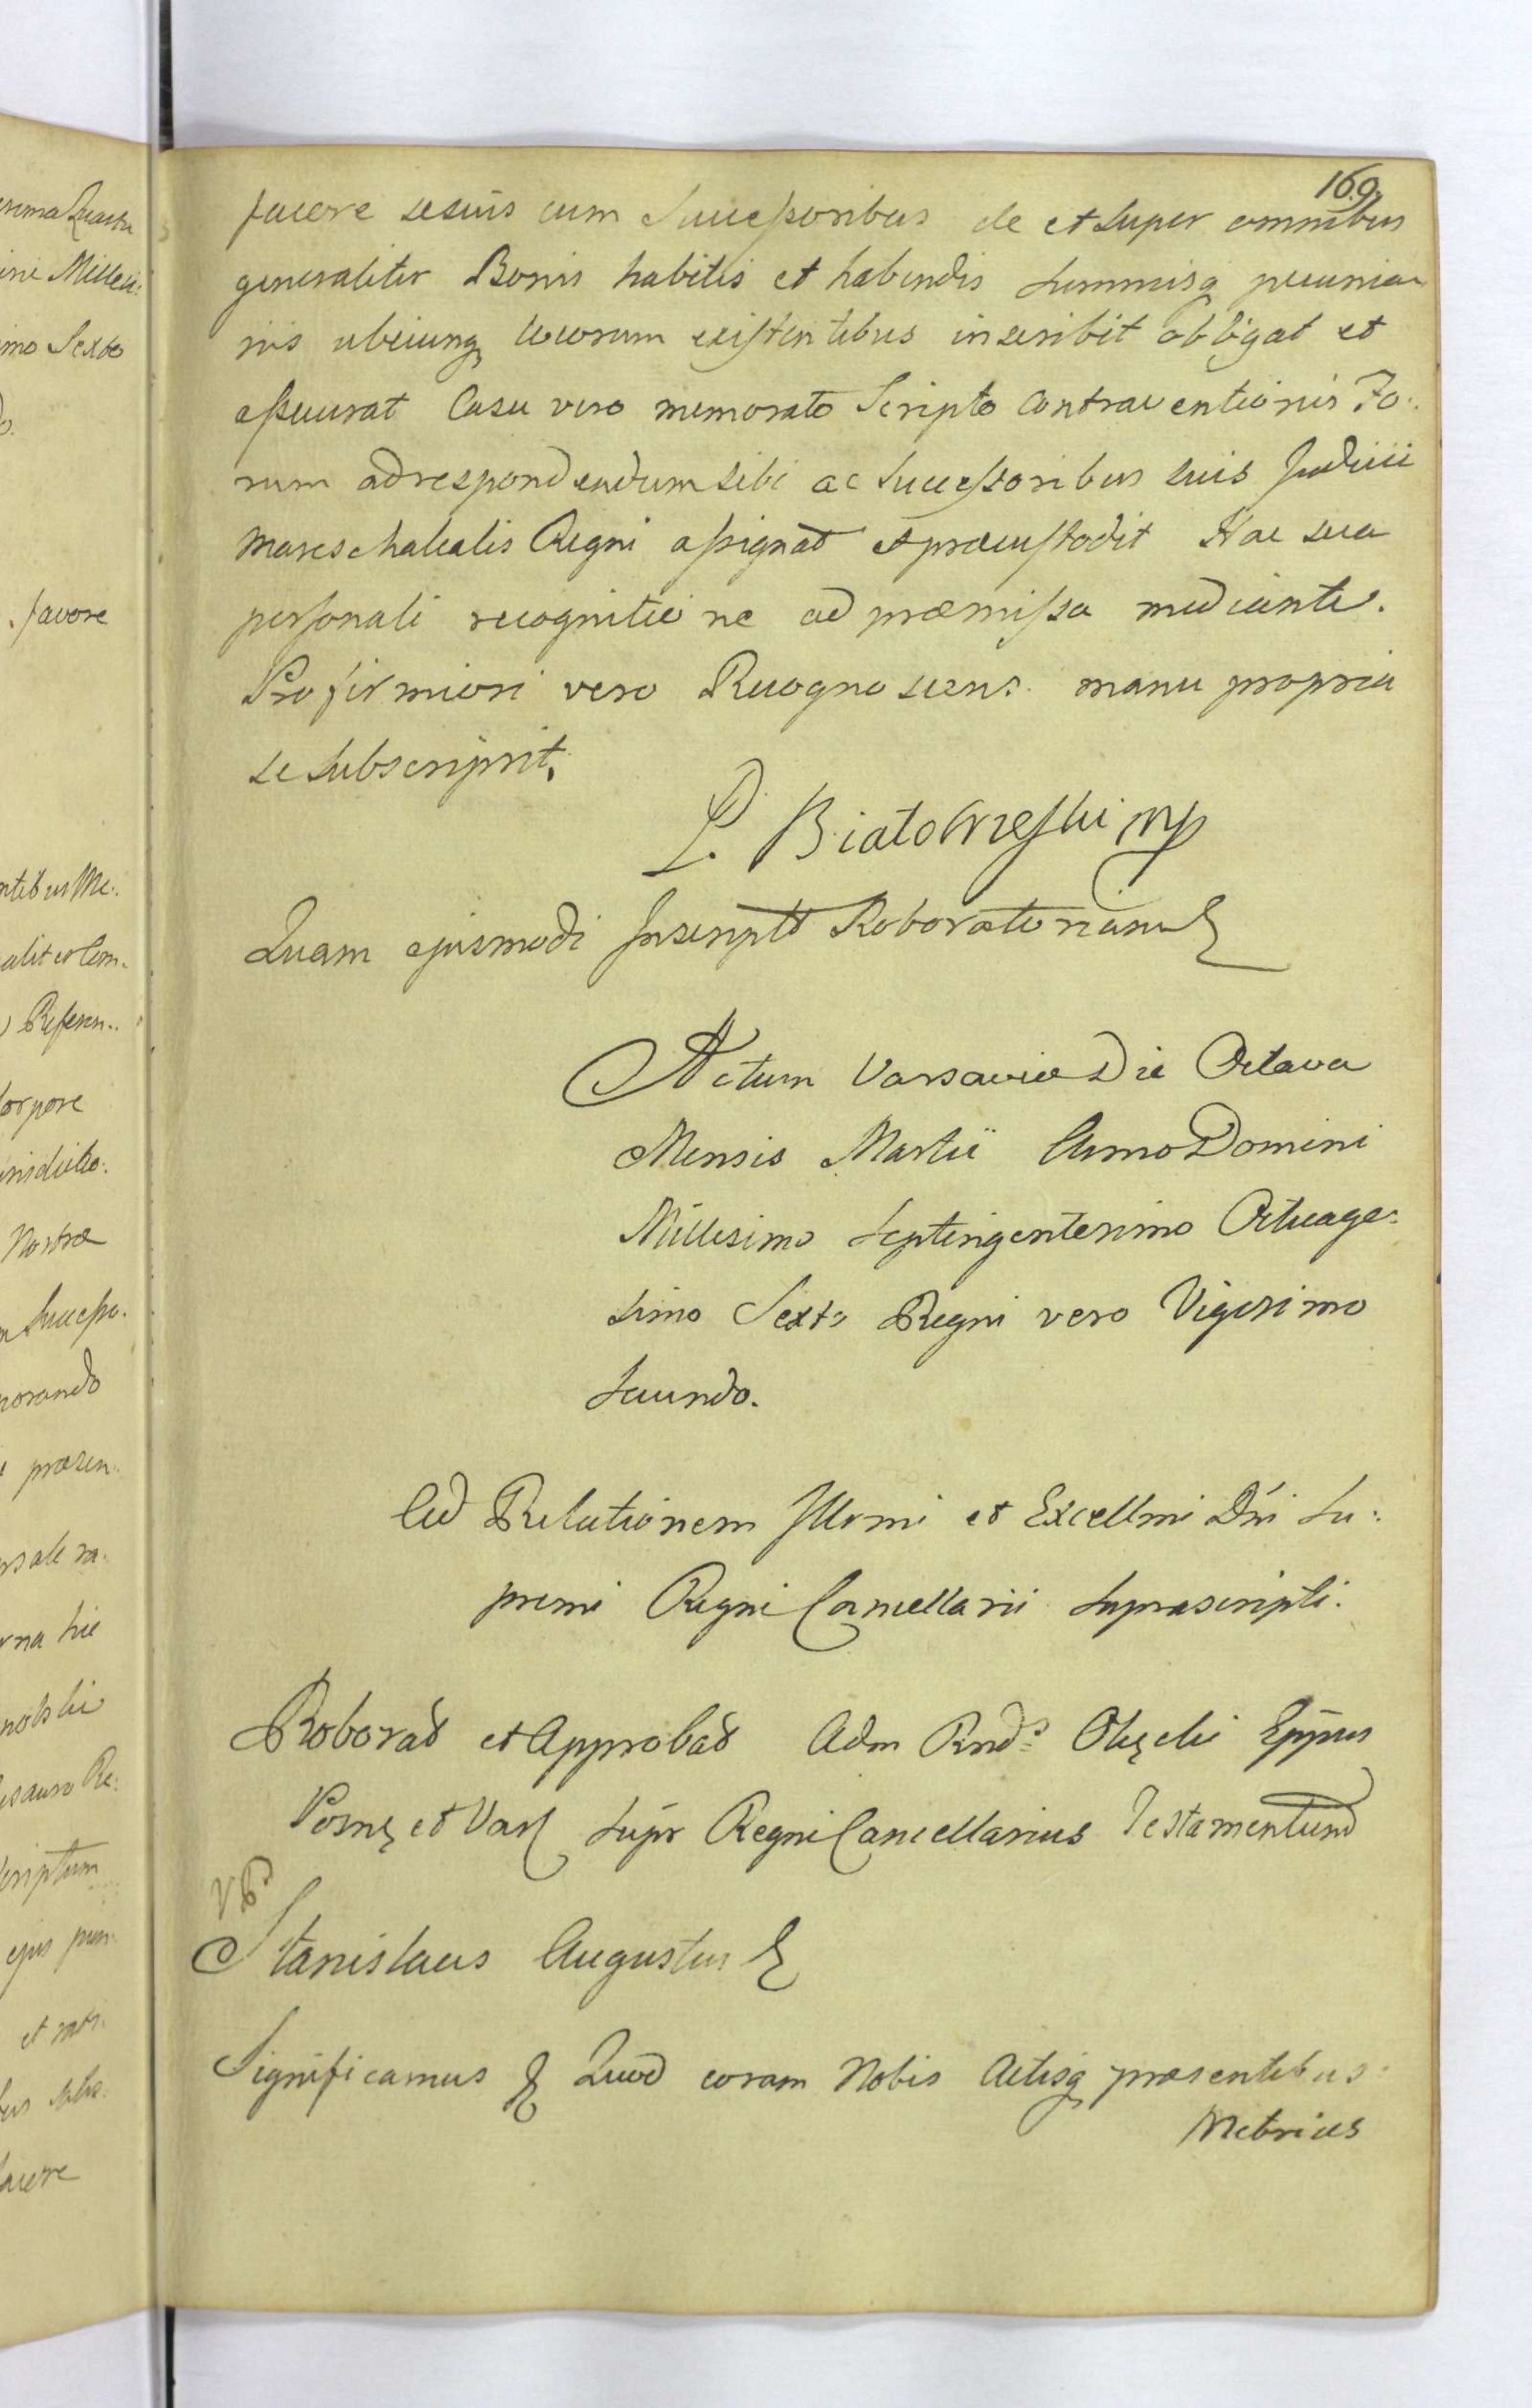 169.
favore se suis cum Successoribus de et super omnibus
generaliter Bonis habitis et habendis summisq pecunia
riis ubicunq locorum existentibus inscribit obligat et
assecurat Casu vero memorato Scripto Contraventionis Fo:
rum ad respondendum sibi ac Successoribus suis Judicii
Mareschalcalis Regni assignat et præcustodit Hac sua
personali recognitio ne ad præmissa mediante.
Pro firmiori vero Recognoscens manu propria
se subscripsit.
P. Białobrzeski mp
Quam ejusmodi Inscript Roboratoriam
Actum Varsaviæ Die Octava
Mensis Martii Anno Domini
Millesimo Septingentesimo Octuage:
simo Sexto Regni vero Vigesimo
Secundo.
Ad Relationem Illmi et Excellmi Dni Su:
premi Regni Cancellarii Suprascripti.
Roborat et Approbat Adm Rnds Okęcki Eppus
Posnę et Vars Supr Regni Cancellarius Testamentum
Stanislaus Augustus
Significamus & Quod coram Nobis Actisq præsentibus
Metrices
erima Quarta
ini Millesi:
imo Sexto
favore
ntibus Me:
alit er Com.
Referen..
Corpore
urisdictio:
Nostra
Successo.
morando
præsen:
rsale ra.
rna hic
nolski
esauro Re:
Scriptum
ejus pun:
et rati.
bus salva:
favere